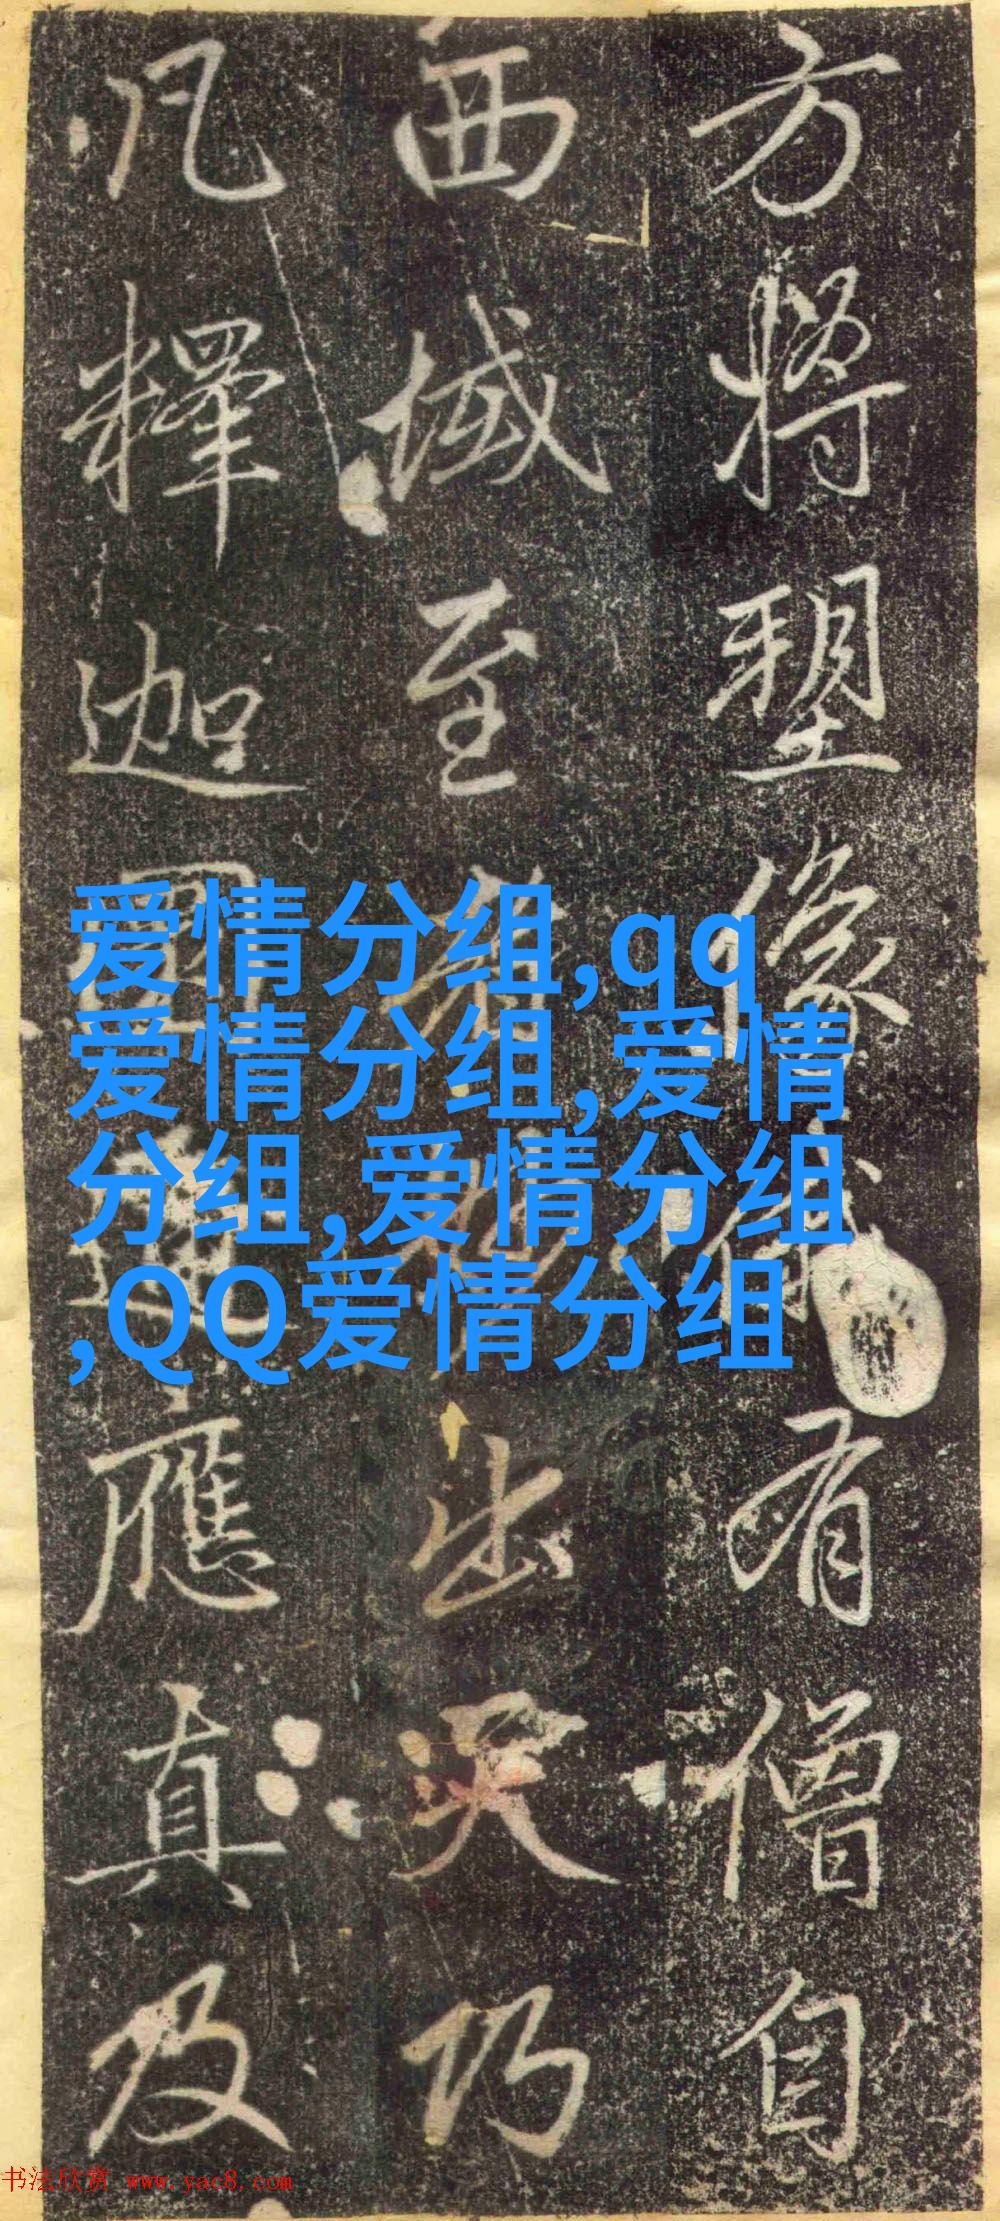 方將塑像有僧自
西域至出天巧
凡釋迦應真及
爱情分组,qq
爱情分组,爱情
分组,爱情分组
,QQ爱情分组
书法欣赏 www.yac8.com